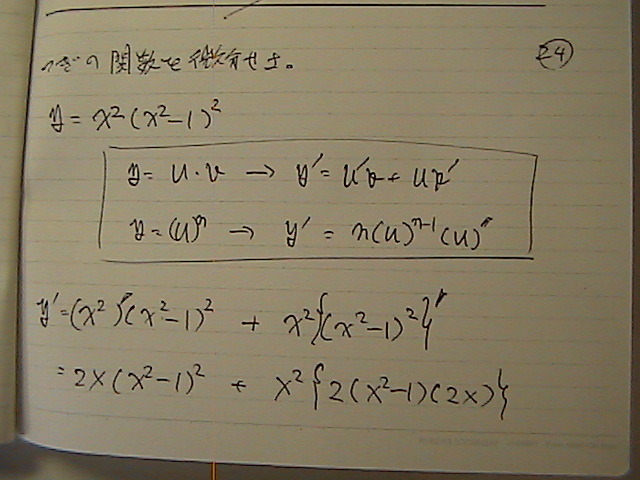 つぎの関数を微分せよ。 24
y = x²(x²-1)²
y = u・v → y' = u'v + uv'
y = (u)ⁿ → y' = n(u)ⁿ⁻¹(u)'
y' = (x²)'(x²-1)² + x²{(x²-1)²}'
= 2x(x²-1)² + x²{2(x²-1)(2x)}